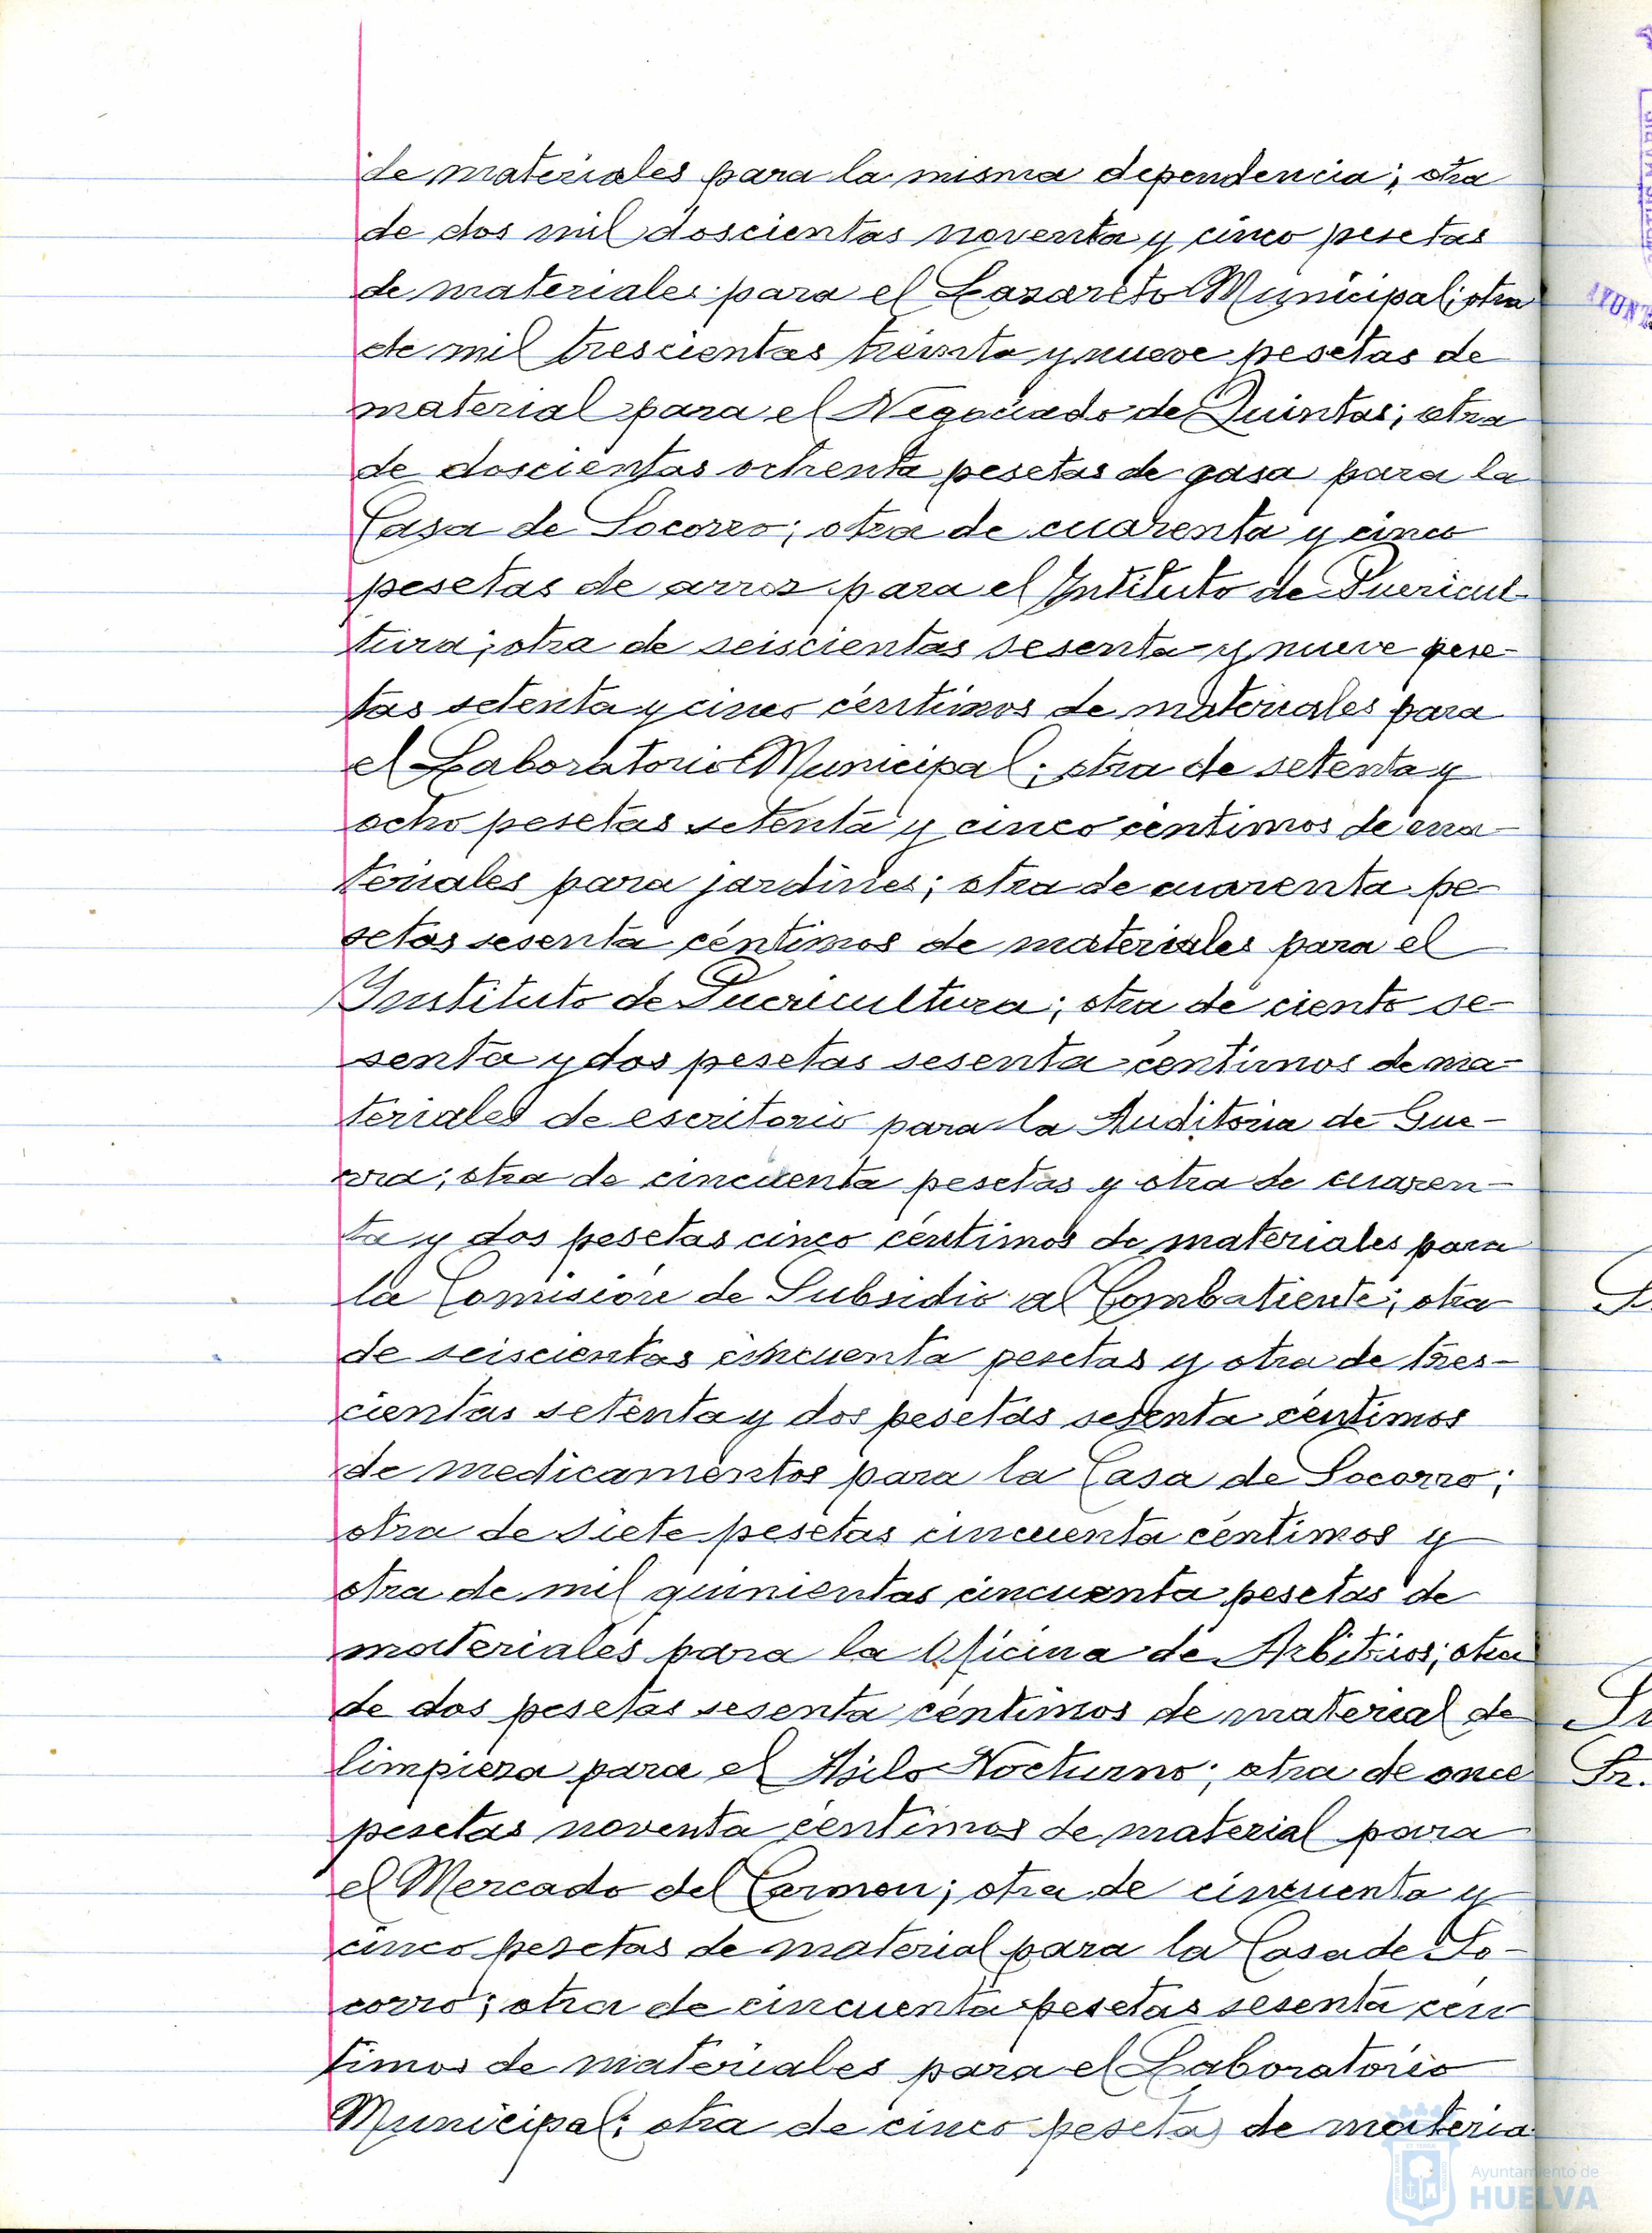 de materiales para la misma dependencia; otra
de dos mil doscientas noventa y cinco pesetas
de materiales para el Lazareto Municipal; otra
de mil trescientas treinta y nueve pesetas de
material para el Negociado de Quintas; otra
de doscientas ochenta pesetas de gasa para la
Casa de Socorro; otra de cuarenta y cinco
pesetas de arroz para el Intituto de Puericul-
tura; otra de seiscientas sesenta y nueve pese-
tas setenta y cinco céntimos de materiales para
el Laboratorio Municipal; otra de setenta y
ocho pesetas setenta y cinco céntimos de ma-
teriales para jardines; otra de cuarenta pe-
setas sesenta céntimos de materiales para el
Instituto de Puericultura; otra de ciento se-
senta y dos pesetas sesenta centimos de ma-
teriales de escritorio para la Auditoria de Gue-
rra; otra de cincuenta pesetas y otra de cuaren-
ta y dos pesetas cinco céntimos de materiales para
la Comisión de Subsidio al Combatiente; otra
de seiscientas cincuenta pesetas y otra de tres-
cientas setenta y dos pesetas sesenta céntimos
de medicamentos para la Casa de Socorro;
otra de siete pesetas cincuenta céntimos y
otra de mil quinientas cincuenta pesetas de
materiales para la Oficina de Arbitrios; otra
de dos pesetas sesenta céntimos de material de
limpieza para el Asilo Nocturno; otra de once
pesetas noventa céntimos de material para
el Mercado del Carmen; otra de cincuenta y
cinco pesetas de material para la Casa de So-
corro; otra de cincuenta pesetas sesenta cén
timos de materiales para el Laboratorio
Municipal; otra de cinco pesetas de materia
Ayuntamiento de
HUELVA